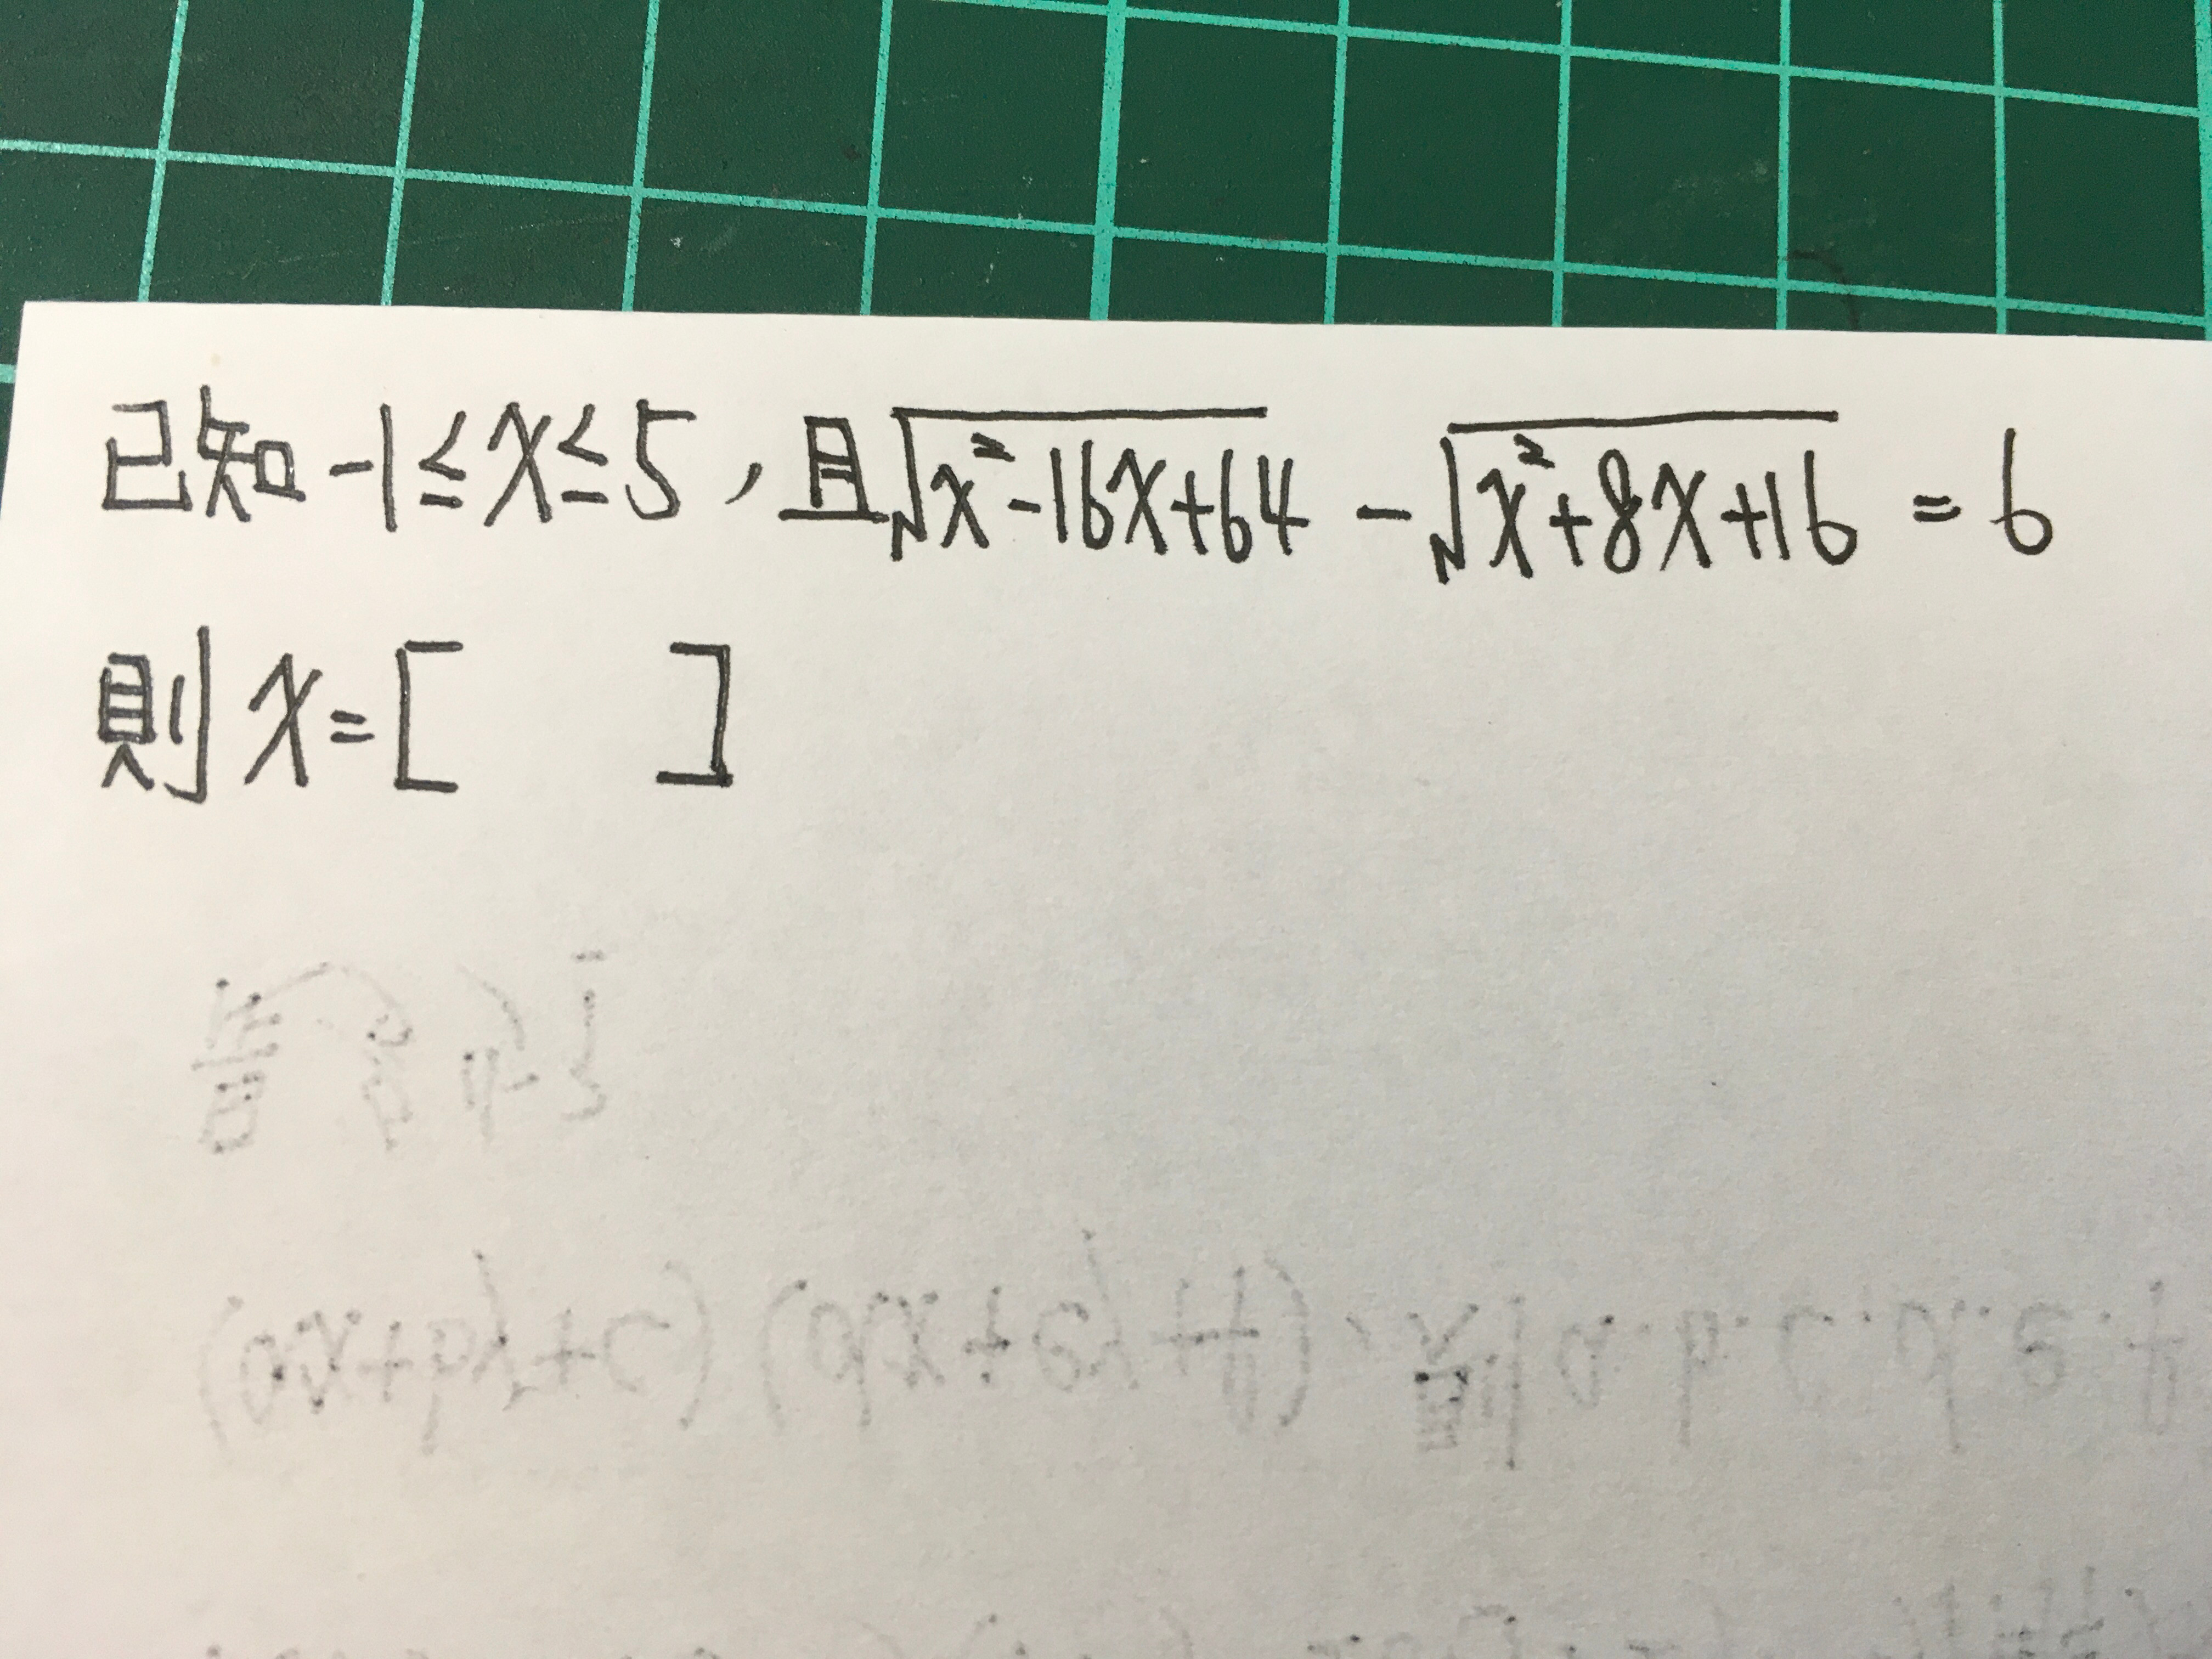 已知 -1≤x≤5，且√(x²-16x+64) - √(x²+8x+16) = 6
則 x=[ ]